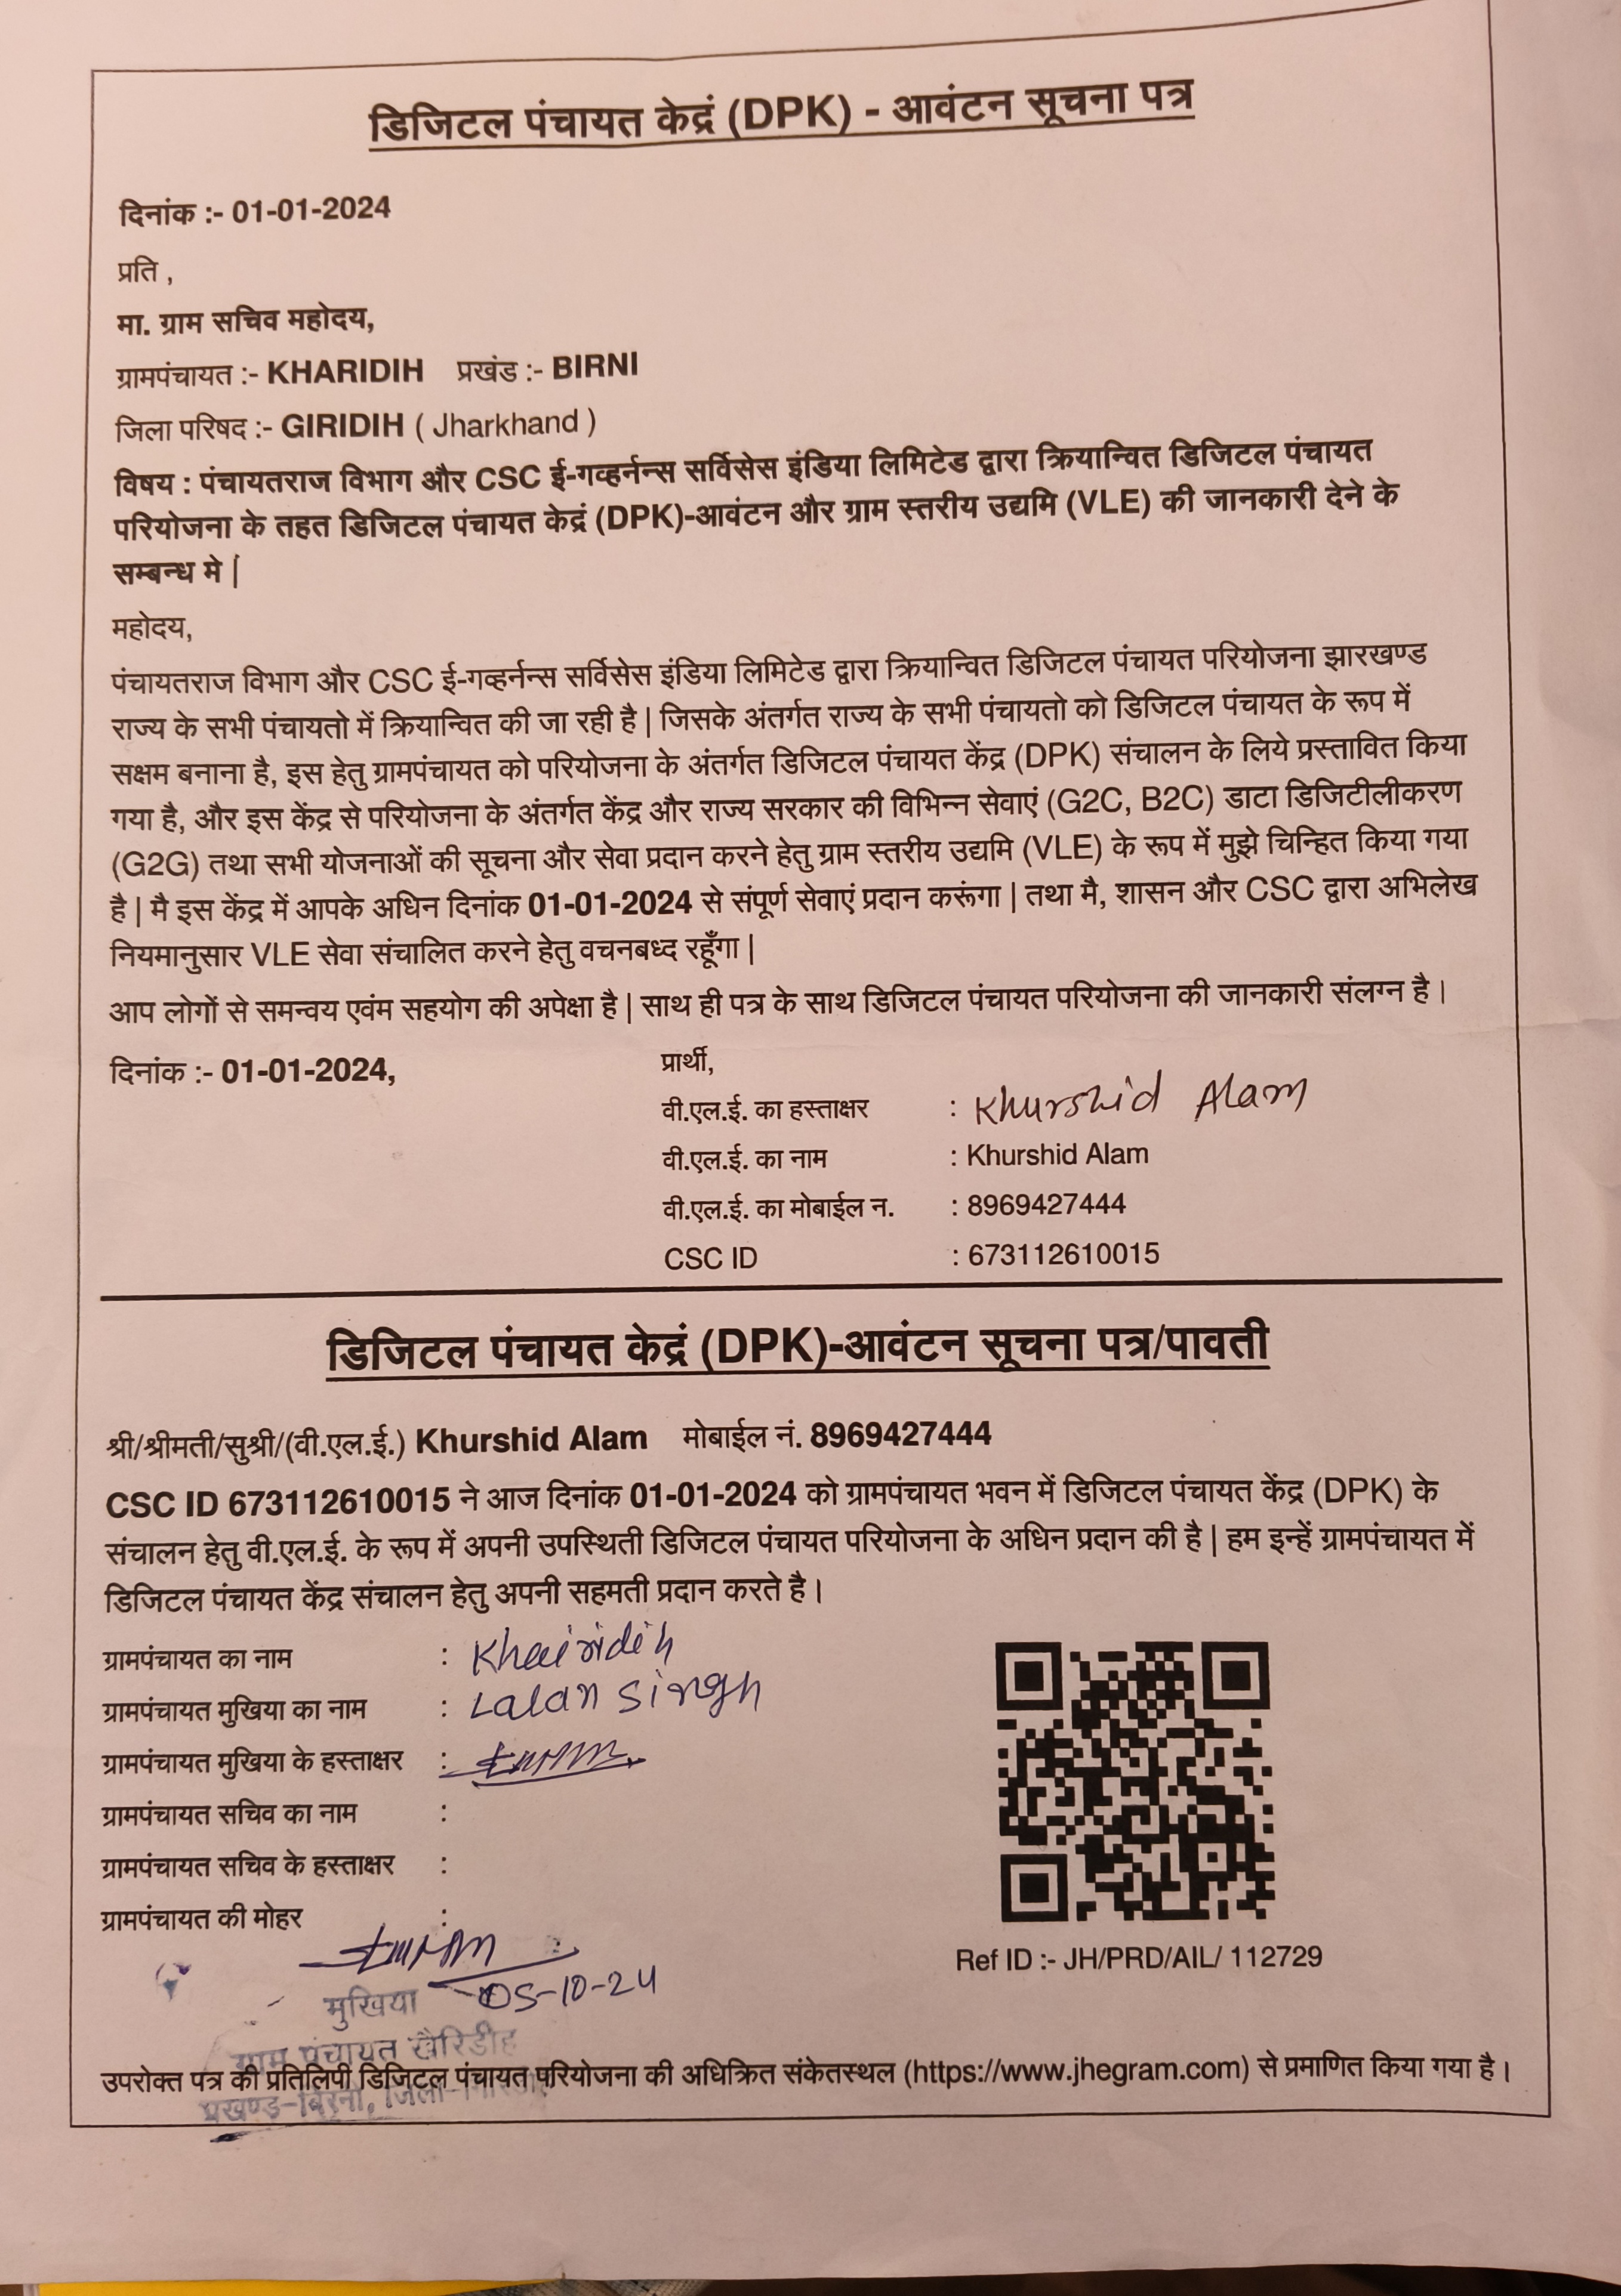 डिजिटल पंचायत केद्रं (DPK) - आवंटन सूचना पत्र
दिनांक :- 01-01-2024
प्रति ,
मा. ग्राम सचिव महोदय,
ग्रामपंचायत :- KHARIDIH प्रखंड :- BIRNI
जिला परिषद :- GIRIDIH ( Jharkhand )
विषय : पंचायतराज विभाग और CSC ई-गव्हर्नन्स सर्विसेस इंडिया लिमिटेड द्वारा क्रियान्वित डिजिटल पंचायत
परियोजना के तहत डिजिटल पंचायत केद्रं (DPK)-आवंटन और ग्राम स्तरीय उद्यमि (VLE) की जानकारी देने के
सम्बन्ध मे |
महोदय,
पंचायतराज विभाग और CSC ई-गव्हर्नन्स सर्विसेस इंडिया लिमिटेड द्वारा क्रियान्वित डिजिटल पंचायत परियोजना झारखण्ड
राज्य के सभी पंचायतो में क्रियान्वित की जा रही है | जिसके अंतर्गत राज्य के सभी पंचायतो को डिजिटल पंचायत के रूप में
सक्षम बनाना है, इस हेतु ग्रामपंचायत को परियोजना के अंतर्गत डिजिटल पंचायत केंद्र (DPK) संचालन के लिये प्रस्तावित किया
गया है, और इस केंद्र से परियोजना के अंतर्गत केंद्र और राज्य सरकार की विभिन्न सेवाएं (G2C, B2C) डाटा डिजिटीलीकरण
(G2G) तथा सभी योजनाओं की सूचना और सेवा प्रदान करने हेतु ग्राम स्तरीय उद्यमि (VLE) के रूप में मुझे चिन्हित किया गया
है | मै इस केंद्र में आपके अधिन दिनांक 01-01-2024 से संपूर्ण सेवाएं प्रदान करूंगा | तथा मै, शासन और CSC द्वारा अभिलेख
नियमानुसार VLE सेवा संचालित करने हेतु वचनबध्द रहूँगा |
आप लोगों से समन्वय एवंम सहयोग की अपेक्षा है | साथ ही पत्र के साथ डिजिटल पंचायत परियोजना की जानकारी संलग्न है |
दिनांक :- 01-01-2024, प्रार्थी,
वी.एल.ई. का हस्ताक्षर : Khurshid Alam
वी.एल.ई. का नाम : Khurshid Alam
वी.एल.ई. का मोबाईल न. : 8969427444
CSC ID : 673112610015
डिजिटल पंचायत केद्रं (DPK)-आवंटन सूचना पत्र/पावती
श्री/श्रीमती/सुश्री/(वी.एल.ई.) Khurshid Alam मोबाईल नं. 8969427444
CSC ID 673112610015 ने आज दिनांक 01-01-2024 को ग्रामपंचायत भवन में डिजिटल पंचायत केंद्र (DPK) के
संचालन हेतु वी.एल.ई. के रूप में अपनी उपस्थिती डिजिटल पंचायत परियोजना के अधिन प्रदान की है | हम इन्हें ग्रामपंचायत में
डिजिटल पंचायत केंद्र संचालन हेतु अपनी सहमती प्रदान करते है |
ग्रामपंचायत का नाम : Khairidih
ग्रामपंचायत मुखिया का नाम : Lalan Singh
ग्रामपंचायत मुखिया के हस्ताक्षर :
ग्रामपंचायत सचिव का नाम :
ग्रामपंचायत सचिव के हस्ताक्षर :
ग्रामपंचायत की मोहर :
Ref ID :- JH/PRD/AIL/ 112729
05-10-24
मुखिया
ग्राम पंचायत खैरिडीह
उपरोक्त पत्र की प्रतिलिपी डिजिटल पंचायत परियोजना की अधिक्रित संकेतस्थल (https://www.jhegram.com) से प्रमाणित किया गया है |
प्रखण्ड-बिरनी, जिला-गिरिडीह